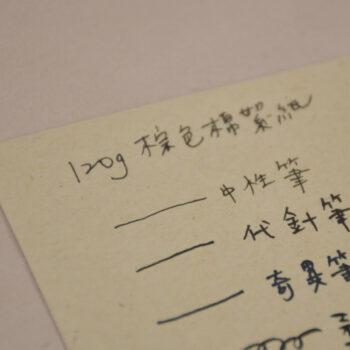 120g 棕色棉絮紙
中性筆
代針筆
奇異筆